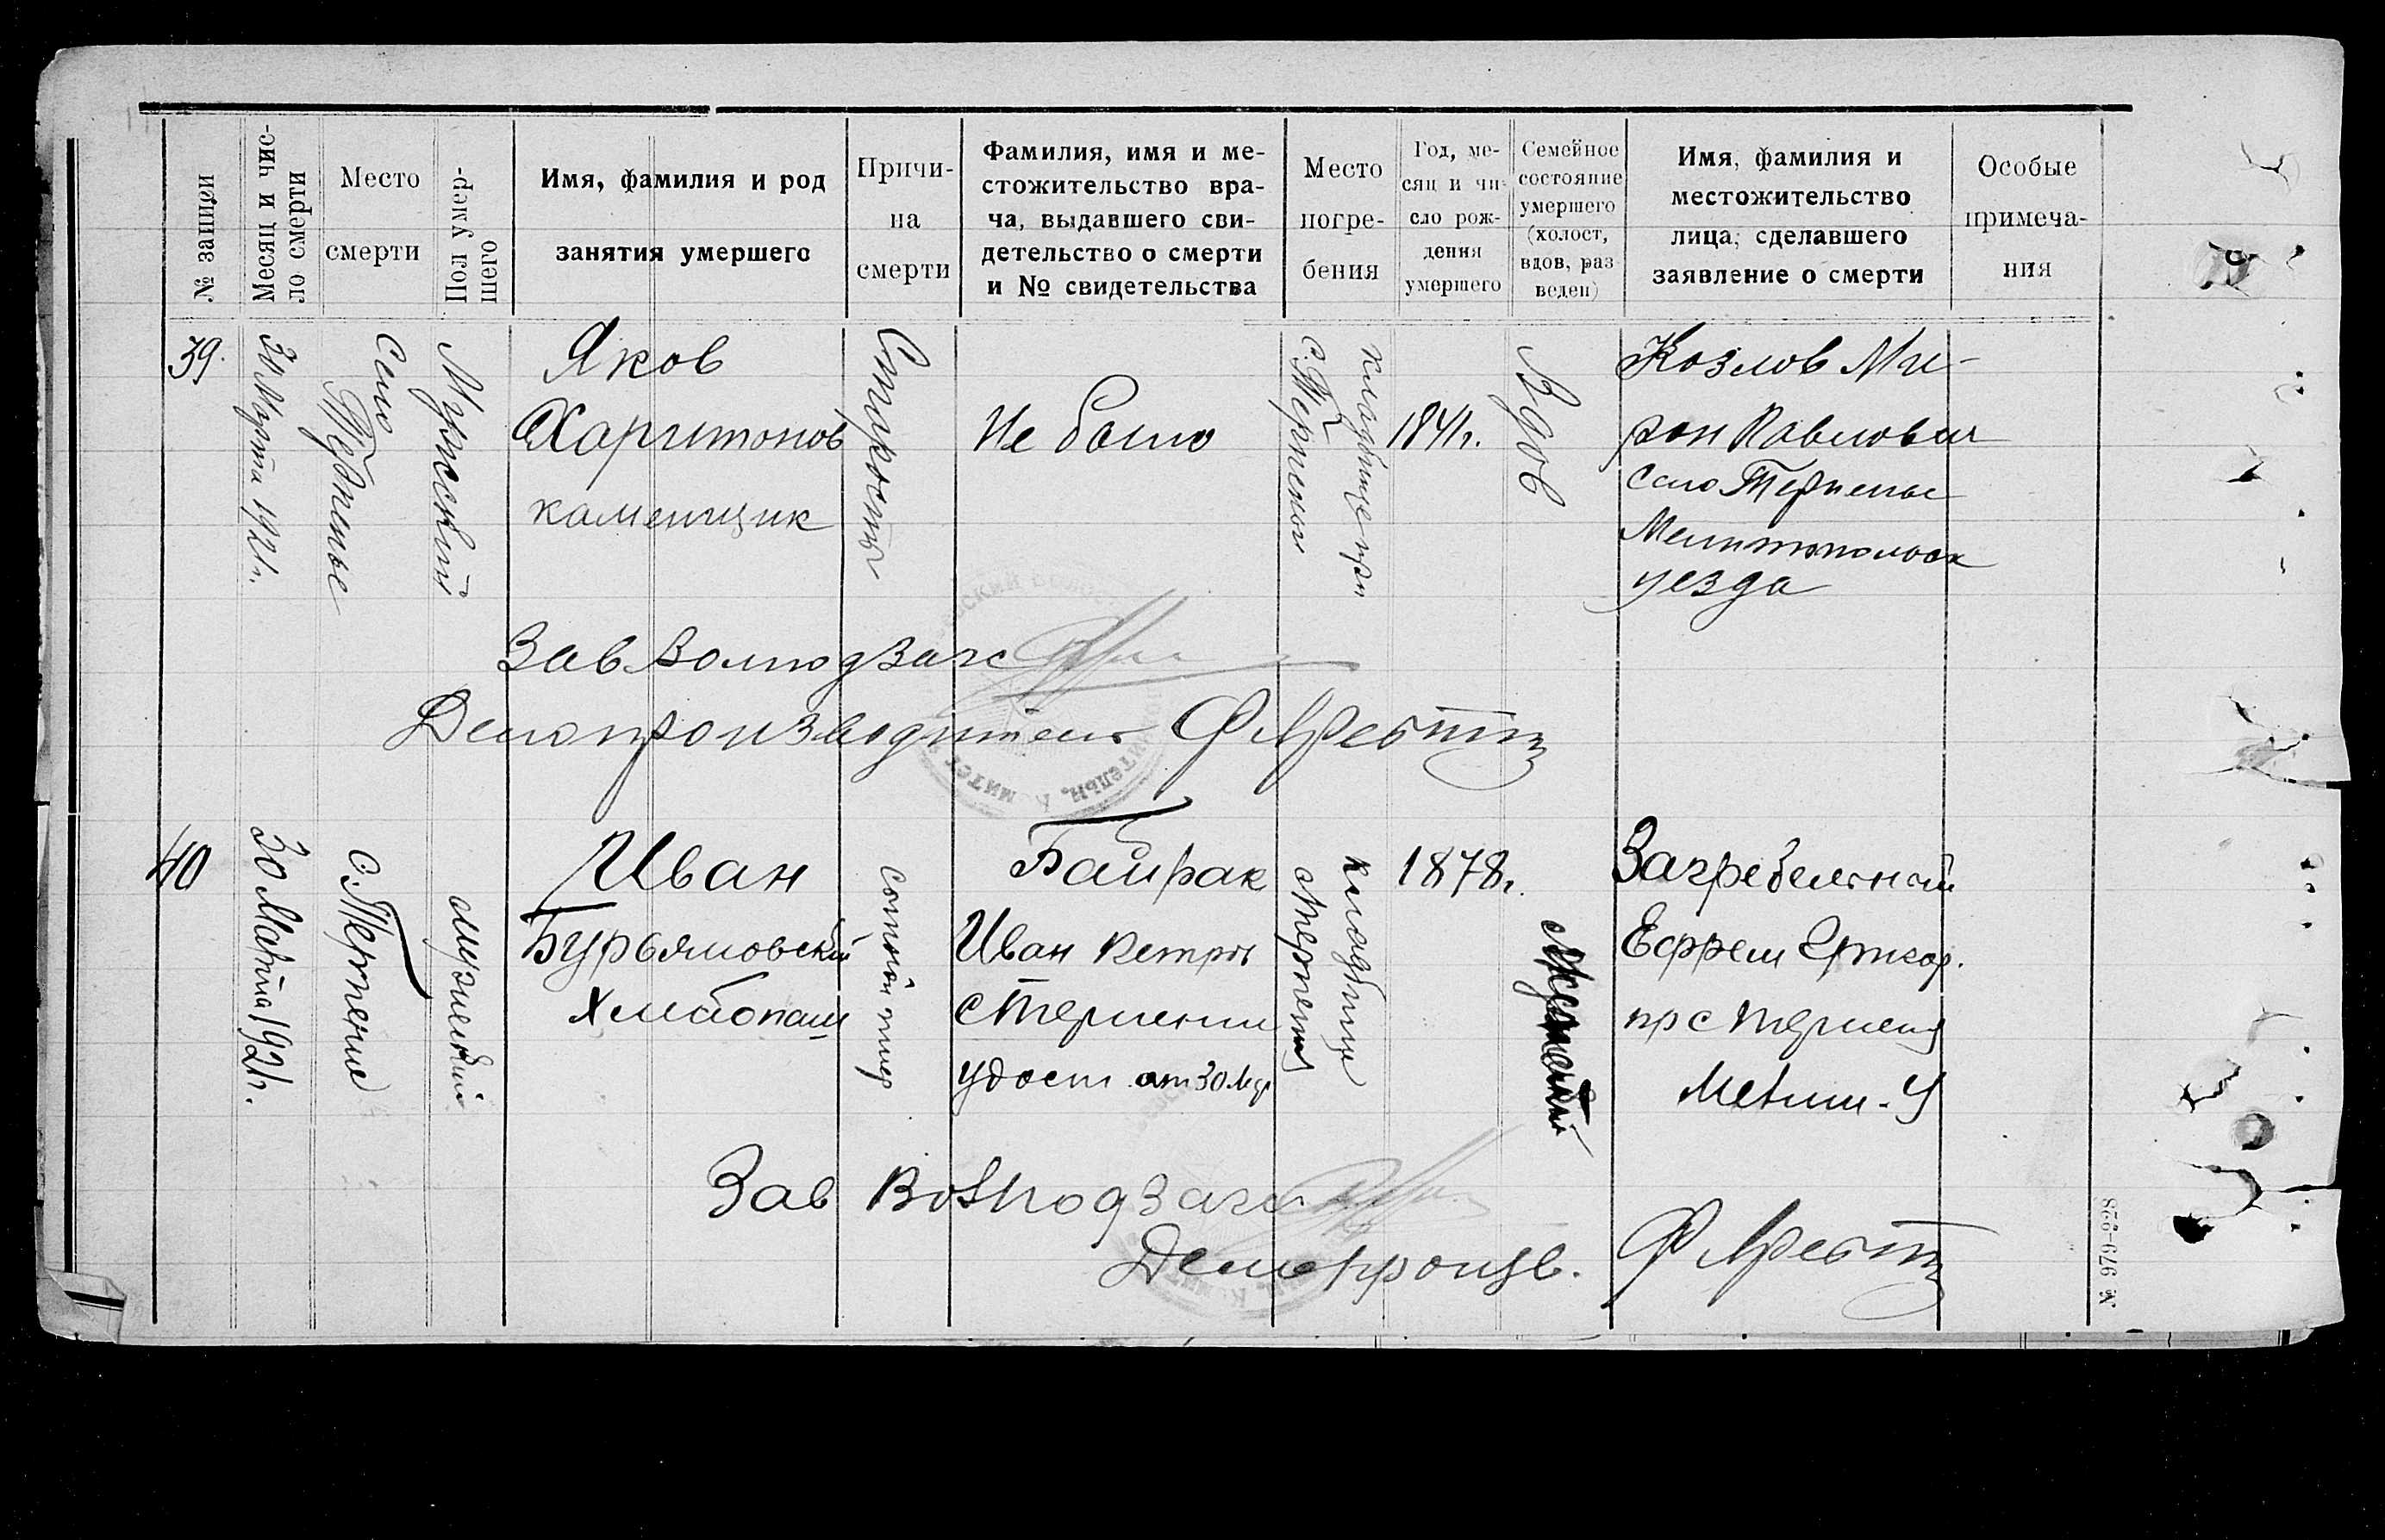 № записи
Месяц и чис-
ло смерти
Место
смерти
Пол умер-
шего
Имя, фамилия и род
занятия умершего
Причи-
на
смерти
Фамилия, имя и ме-
стожительство вра-
ча, выдавшего сви-
детельство о смерти
и № свидетельства
Место
погре-
бения
Год, ме-
сяц и чи-
сло рож-
дения
умершего
Семейное
состояние
умершего
(холост,
вдов, раз
веден)
Имя, фамилия и
местожительство
лица, сделавшего
заявление о смерти
Особые
примеча-
ния
39.
Марта 1921г.
Село
Терпенье
Мужской
Яков
Харитонов
каменщик
Старость
Не было
кладбище при
с. Терпении
1841г.
Вдов
Козлов Ми-
рон Павлович
село Терпенье
Мелитопольск
уезда
Зав Волподзагс
Делопроизводитель
40
30 Марта 1921г.
с. Терпение
мужской
Иван
Бурьяновский
Хлебопаш
сыпной тиф
Байрак
Иван Петров
с Терпении
удост от 30 Мар
кладбище
Терпении
1878г.
Загребельный
Ефрем Григор.
пр с Терпени
Мелит. У
Зав Волподзагс
Делопроизв.
№ 979-928